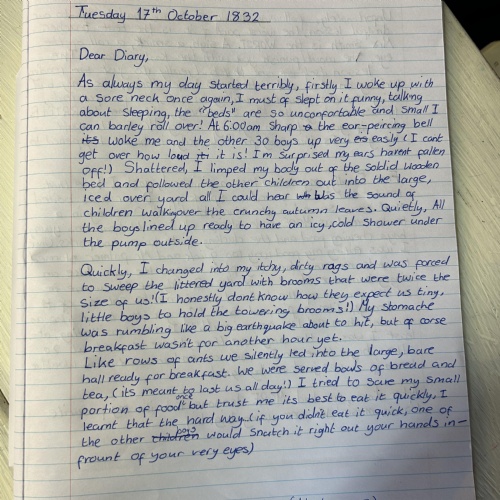 Tuesday 17th October 1832
Dear Diary,
As always my day started terribly, firstly I woke up with
a sore neck once again, I must of slept on it funny, talking
about sleeping, the "beds" are so unconfortable and small I
can barley roll over! At 6:00am sharp the ear-peircing bell
woke me and the other 30 boys up very easily (I cant
get over how loud it is! I'm surprised my ears havent fallen
off!) Shattered, I limped my body out of the soldid wooden
bed and followed the other children out into the large,
iced over yard all I could hear was the sound of
children walking over the crunchy autumn leaves. Quietly, All
the boys lined up ready to have an icy, cold shower under
the pump outside.
Quickly, I changed into my itchy, dirty rags and was forced
to sweep the littered yard with brooms that were twice the
size of us! (I honestly dont know how they expect us tiny,
little boys to hold the towering brooms!) My stomache
was rumbling like a big earthquake about to hit, but of corse
breakfast wasn't for another hour yet.
Like rows of ants we silently led into the large, bare
hall ready for breakfast. We were served bowls of bread and
tea, (its meant to last us all day!) I tried to save my small
portion of food once but trust me its best to eat it quickly, I
learnt that the hard way. (if you didn't eat it quick, one of
the other boys would snatch it right out your hands in-
frount of your very eyes)